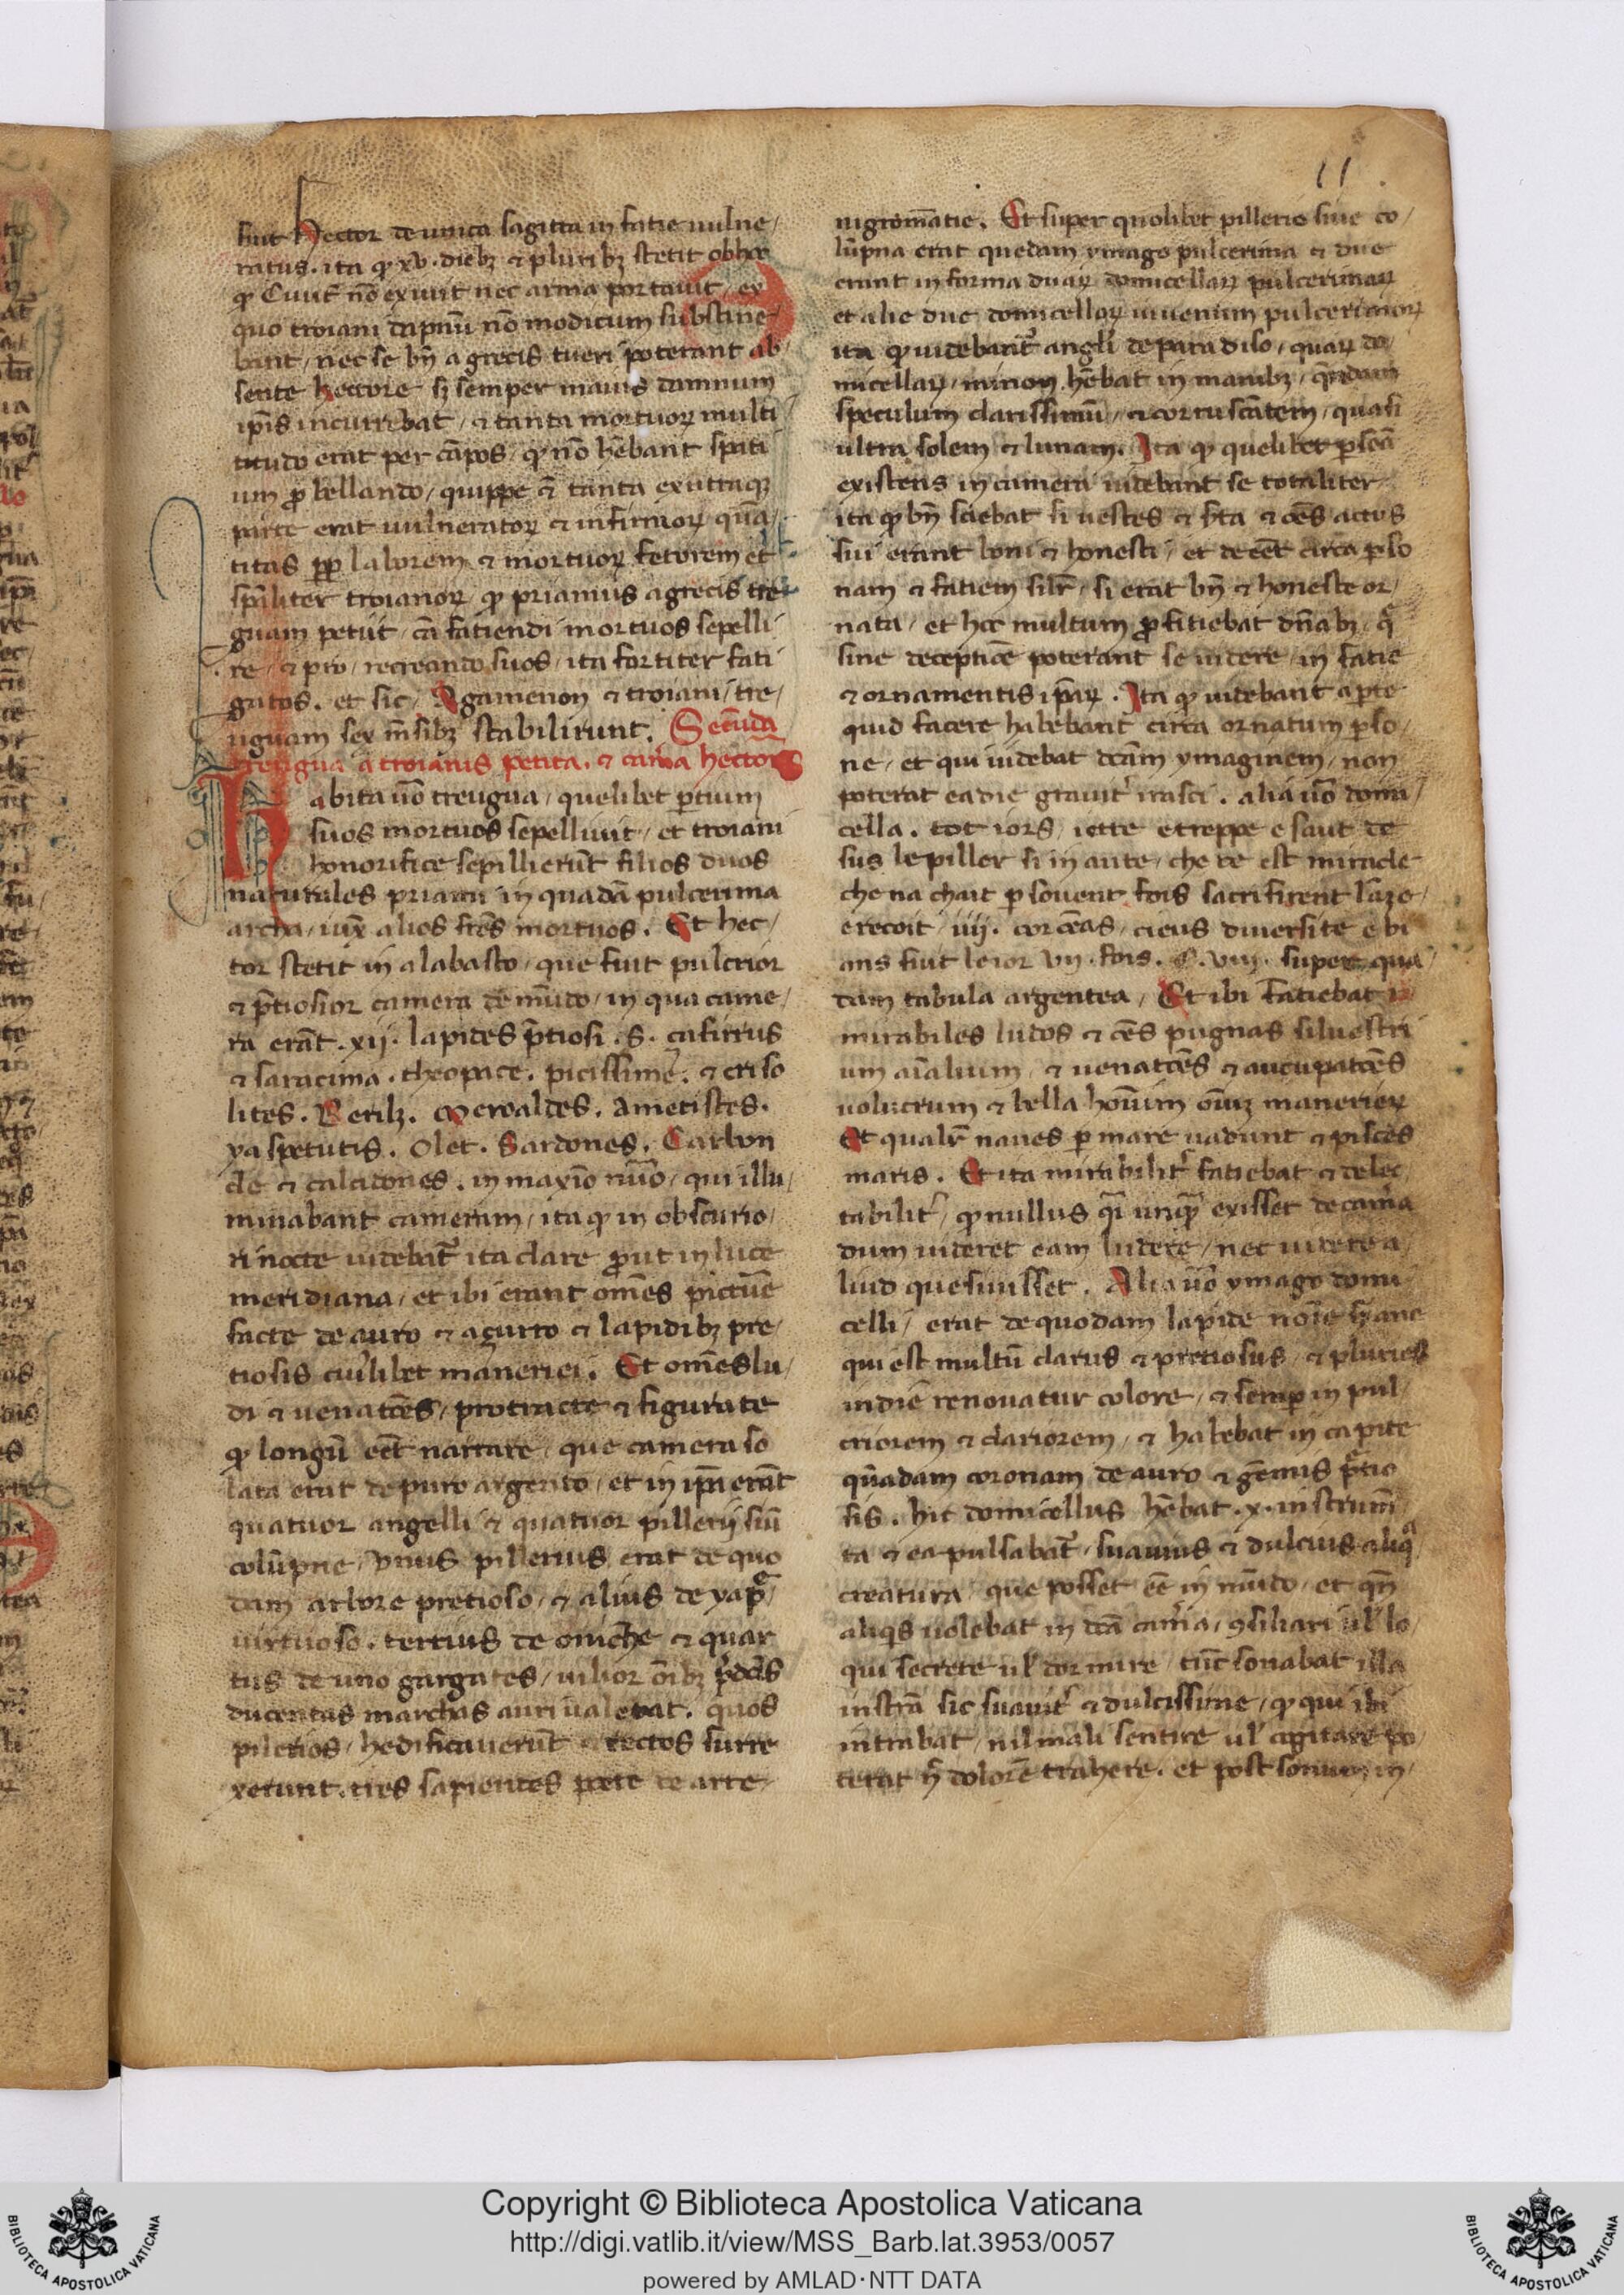 11
fuit Hector de unica sagitta in fatie uulne/
ratus. ita ꝙ xv. diebꝫ ⁊ pluribꝫ stetit ob hoc
ꝙ nō exiuit nec arma portauit / ex
quo troiani dāpnū nō modicum substine/
bant / nec se bn̄ a grecis tueri poterant ab/
sente hectore sꝫ semper maius damnum
ip̄is incurrebat / ⁊ tanta mortuoꝝ multi/
tudo erat per cāpos / ꝙ nō hēbant spati
um ꝓ bellando / quippe ⁊ tanta ex utraqꝫ
parte erat uulneratoꝝ ⁊ infirmoꝝ quā/
titas ꝓp laborem ⁊ mortuoꝝ fetorem et
sp̄aliter troianoꝝ ꝙ priamus a grecis tre
guam petiit / cā fatiendi mortuos sepelli/
re / ⁊ pro / recreando suos / ita fortiter fati
gatos. et sic / Agamenon ⁊ troiani / tre/
uguam sex mēsibꝫ stabilirunt. Secūda
treugua a troianis petita. ⁊ cam̄a hectoris
Habita uo͞ treugua / quelibet ꝑtium
suos mortuos sepelliuit / et troiani
honorifice sepillierūt filios duos
naturales priami in quadā pulcerima
archa / iux̄ alios fr̄es mortuos. Et hec/
tor stetit in alabasto / que fuit pulcrior
⁊ p̄tiosior camera de mūdo / in qua came/
ra erāt .xij. lapides p̄tiosi .s. çafirrus
⁊ saracima . theopace . picissime . ⁊ criso
lites. Berilꝫ. Merealdes. Ametistes.
yaspetutis. Olet. Sardones. Carbon
cle ⁊ calcidones. in maxīo nūo / qui illu/
minabant cameram / ita ꝙ in obscurio/
ri nocte uidebat᷑ ita clare ꝓut in luce
meridiana / et ibi erant om̄es pictūe
facte de auro ⁊ açurro ⁊ lapidibꝫ pre/
tiosis cuiuslibet maneriei. Et om̄es lu/
di ⁊ uenatōes / protracte ⁊ figurate
ꝙ longū eēt narrare / que camera so
lata erat de puro argento / et in ip̄a erāt
quatuor angelli ⁊ quatuor pillerij siū
colūpne / Vnus pillerius erat de quo
dam arbore pretioso / ⁊ alius de yap̄e/
uirtuoso. tertius de oniche ⁊ quar
tus de uno gargates / uilior oībꝫ p̄dcīs
ducentas marchas auri ualebat. quos
pilerios / hedificauerūt ⁊ rectos surre
xerunt. tres sapientes poete de arte/
nigromātie. Et super quolibet pillerio siue co/
lūpna erat quedam ymago pulcerima ⁊ due
erant in forma duaꝝ domicellaꝝ pulcerimaꝝ
et alie due domicelloꝝ iuuenum pulcerimoꝝ
ita ꝙ uidebant᷑ angli de paradiso / quaꝝ do/
micellaꝝ / minor hēbat in manibꝫ / quēdam
speculum clarissimū / ⁊ corruscātem / quasi
ultra solem ⁊ lunam. Ita ꝙ quelibet ꝑsoā
existens in camera uidebant se totaliter
ita ꝙ bn̄ sciebat si uestes ⁊ fc̄a ⁊ oēs actus
sui erant boni ⁊ honesti / et decēt circa ꝑso
nam ⁊ fatiem silr̄ / si erat bn̄ ⁊ honeste or/
nata / et hoc multum ꝓfitiebat dn̄abꝫ / q̄
sine deceptiōe poterant se uidere / in fatie
⁊ ornamentis ip̄aꝝ . Ita ꝙ uidebant aperte
quid facere habebant circa ornatum ꝑso/
ne / et qui uidebat dcām ymaginem / non
poterat ea die grauit᷑ irasci . alia uo͞ domi/
cella . tot iors / iette etreppe e saut de
sus le piller si in aute / che ce est miracle
che na chait ꝑ souent fois sacrifirent lāze/
e recoit / iiij. cor ceas / cieus diuersite e bi
ans fiut le ior vij. fois. C. viij. super qua/
dam tabula argentea / Et ibi fatiebat
mirabiles ludos ⁊ oēs pugnas siluestri
um aīalium / ⁊ uenatōes ⁊ aucupatōes
uolucrum ⁊ bella hoīum oīuꝫ manerieꝝ
Et qualr̄ naues ꝑ mare uadunt ⁊ pisces
maris. Et ita mirabilit᷑ fatiebat ⁊ delec
tabilit᷑ / ꝙ nullus qi unqꝫ exisset de cam̄a
dum uideret eam ludere / nec uidere a/
liud quesiuisset. Alia uo͞ ymago domi/
celli / erat de quodam lapide noīe
qui est multū clarus ⁊ pretiosus / ⁊ pluries
in diē renouatur colore / ⁊ semꝑ in pul/
criorem ⁊ clariorem / ⁊ habebat in capite
quādam coronam de auro ⁊ gēmis p̄tio
sis. hic domicellus hēbat .x. instrumē
ta ⁊ ea pulsabat᷑ / suauius ⁊ dulcius aliqᵃ
creatura / que posset eē in mūdo / et qn̄
aliqs uolebat in dcā cam̄a / ꝯsiliari ul̄ lo/
qui secrete ul̄ dormire / tūc sonabat illa
instrā sic suauit᷑ ⁊ dulcissime / ꝙ qui ibi
intrabat / nil mali sentire ul̄ cogitare po/
terat n̄ dolorē trahere. et post sonum in/
Copyright © Biblioteca Apostolica Vaticana
http://digi.vatlib.it/view/MSS_Barb.lat.3953/0057
powered by AMLAD·NTT DATA
BIBLIOTECA APOSTOLICA VATICANA
BIBLIOTECA APOSTOLICA VATICANA